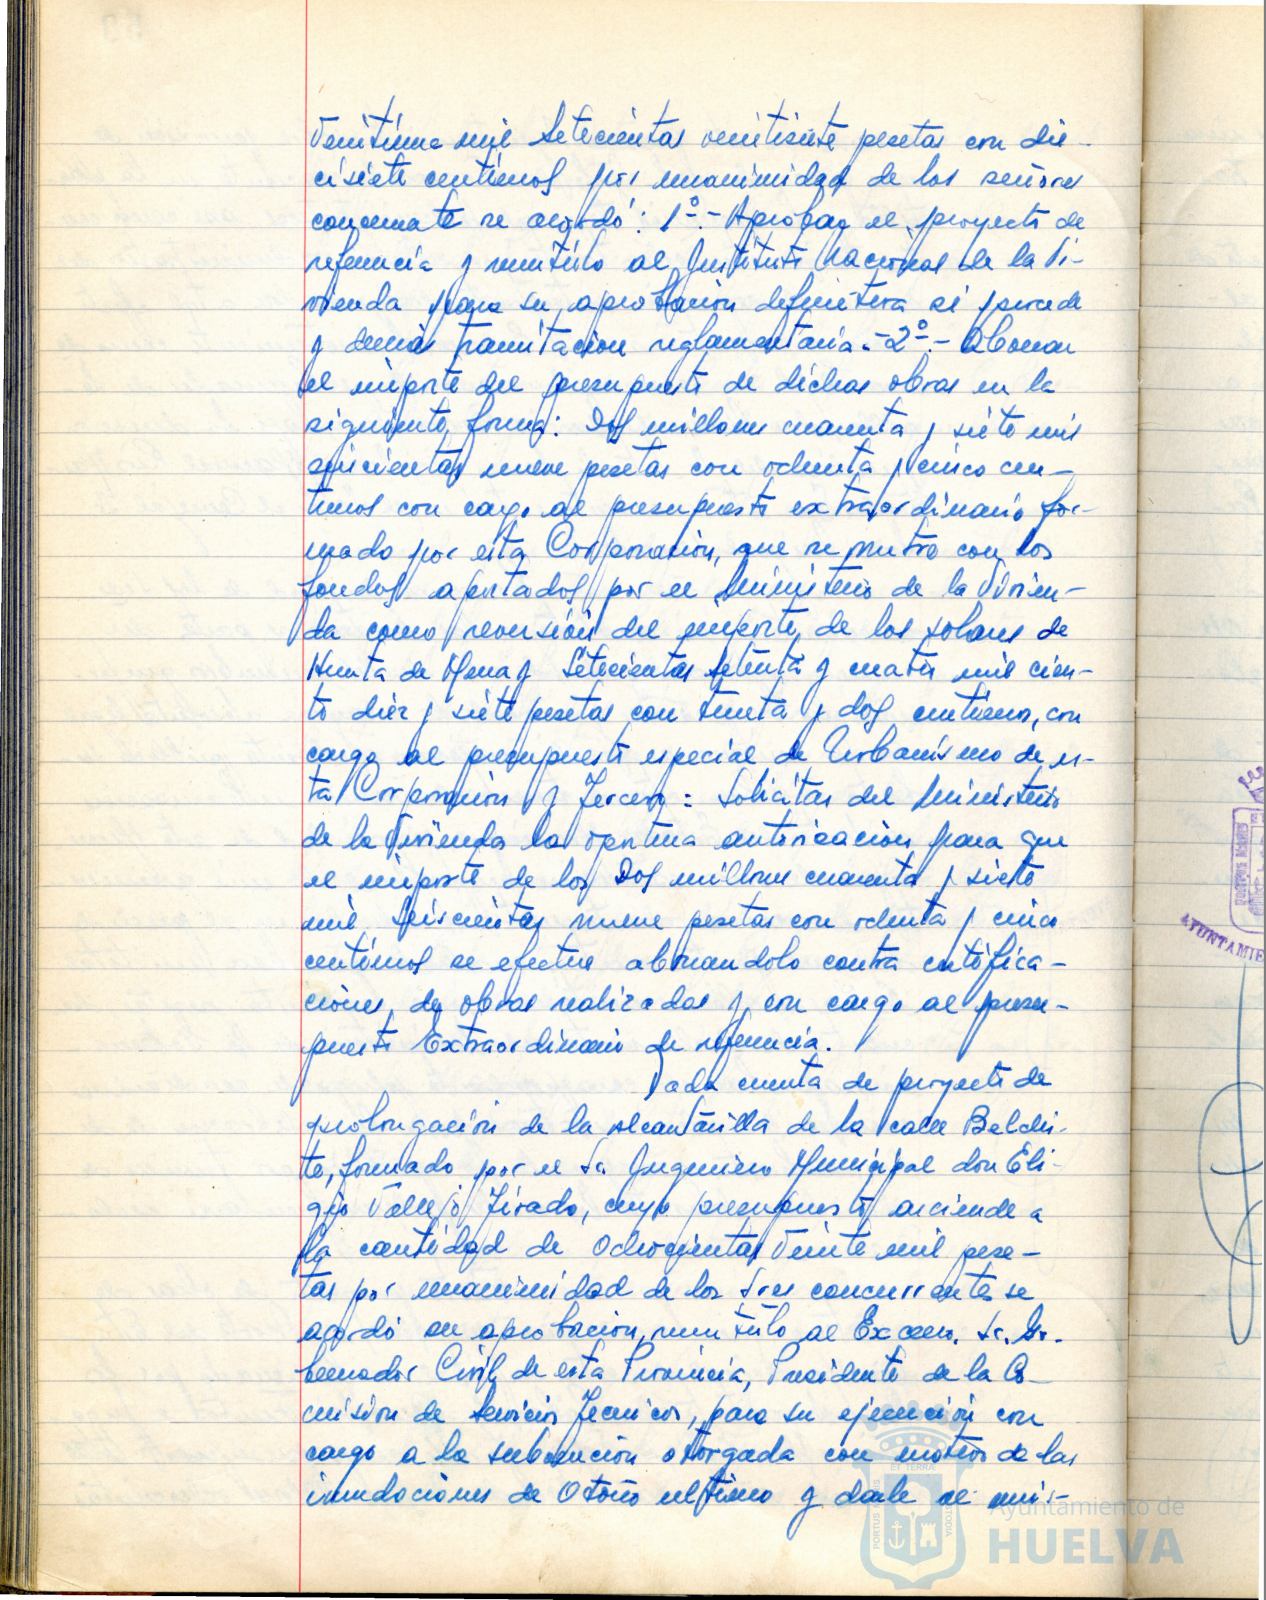 Veintiuna mil Setecientas veintisiete pesetas con die-
cisiete centimos por unanimidad de los señores
concurrente se acordó: 1º.- Aprobar el proyecto de
referencia y remitirlo al Instituto Nacional de la Vi-
vienda para su aprobacion definitiva si procede
y demás tramitacion reglamentaria.- 2º.- Abonar
el importe del presupuesto de dichas obras en la
siguiente forma: Dos millones cuarenta y siete mil
seiscientas nueve pesetas con ochenta y cinco cen-
timos con cargo al presupuesto extraordinario for-
mado por esta Corporacion, que se nutre con los
fondos aportados por el Ministerio de la Vivien-
da como reversión del importe de los solares de
Huerta de Mena y Setecientas setenta y cuatro mil cien-
to diez y siete pesetas con treinta y dos centimos, con
cargo al presupuesto especial de Urbanismo de es-
ta Corporacion y Tercero: Solicitar del Ministerio
de la Vivienda la oportuna autorizacion para que
el importe de los Dos millones cuarenta y siete
mil Seiscientas nueve pesetas con ochenta y cinco
centimos se efectue abonandolo contra certifica-
ciones de obras realizadas y con cargo al presu-
puesto Extraordinario de referencia.
Dada cuenta de proyecto de
prolongación de la alcantarilla de la calle Belchi-
te, formado por el Sr. Ingeniero Municipal don Eli-
gio Vallejo Tirado, cuyo presupuesto asciende a
la cantidad de Ochocientas Veinte mil pese-
tas por unanimidad de los Sres concurrentes se
acordó su aprobacion, remitirlo al Excmo. Sr. Go-
bernador Civil de esta Provincia, Presidente de la Co-
mision de Servicios Tecnicos, para su ejecución con
cargo a la subvencion otorgada con motivo de las
inundaciones de Otoño ultimo y darle al mis-
AYUNTAMIE
Ayuntamiento de
HUELVA